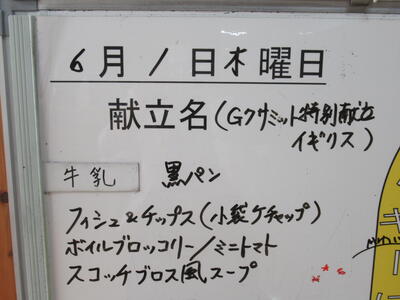 6月1日木曜日
献立名(G7サミット特別献立
イギリス)
牛乳 黒パン
フィシュ&チップス(小袋ケチャップ)
ボイルブロッコリー/ミニトマト
スコッチブロス風スープ